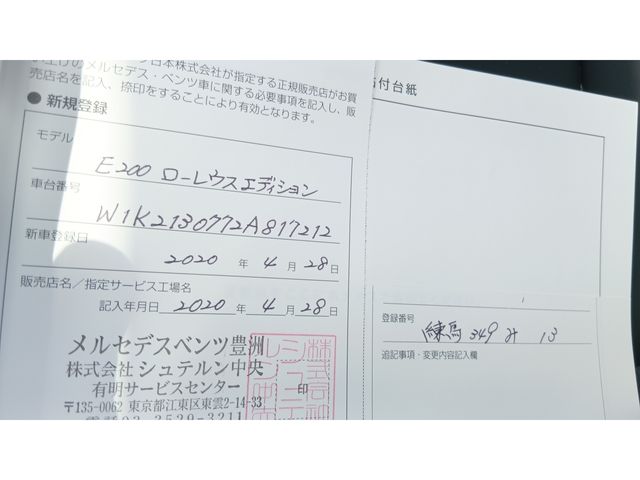 日本株式会社が指定する正規販売店がお買
い上げのメルセデス・ベンツ車に関する必要事項を記入し、販
売店名を記入、捺印をすることにより有効となります。
● 新規登録
モデル
E200 ローレウスエディション
車台番号
W1K2130772A817212
新車登録日
2020 年 4 月 28 日
販売店名／指定サービス工場名
記入年月日 2020 年 4 月 28 日
メルセデスベンツ豊洲
株式会社シュテルン中央
有明サービスセンター
〒135-0062 東京都江東区東雲2-14-33
電話 03-3529-3211
印
付台紙
登録番号
練馬 349 み 13
追記事項・変更内容記入欄